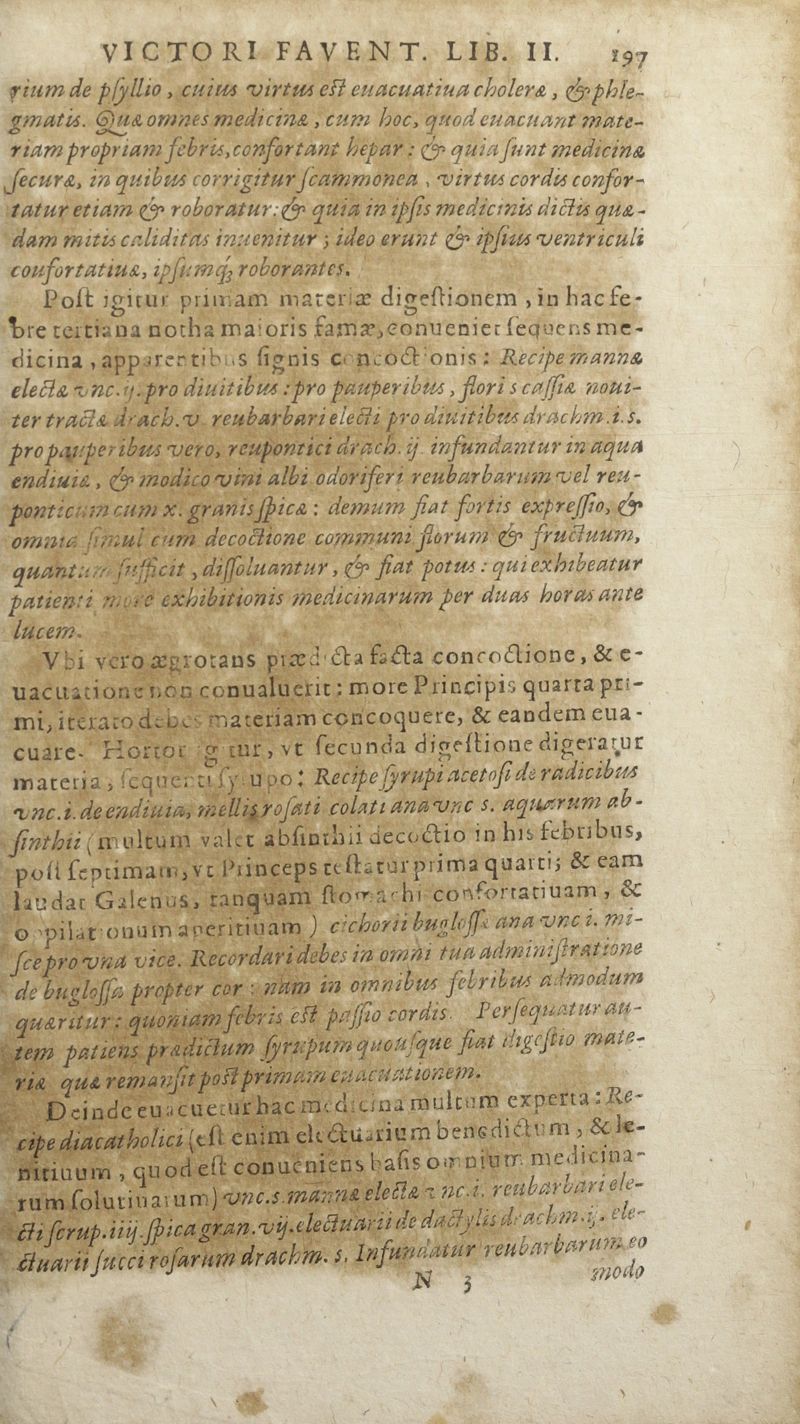 VICTORI FAVENT. LIB. II. 197
rium de pſyllio, cuius virtus eſt euacuatiua choleræ, & phle-
gmatis. Quæ omnes medicinæ, cum hoc, quod euacuant mate-
riam propriam febris, confortant hepar: & quia ſunt medicinæ
ſecuræ, in quibus corrigitur ſcammonea, virtus cordis confor-
tatur etiam & roboratur: & quia in ipſis medicinis dictis quæ-
dam mitis caliditas inuenitur; ideo erunt & ipſius ventriculi
coufortatiuæ, ipſumq; roborantes.
Poſt igitur primam materiæ digeſtionem, in hac fe-
bre tertiana notha maioris famæ, conueniet ſequens me-
dicina, apparentibus ſignis concoctionis: Recipe mannæ
electæ vnc. ij. pro diuitibus: pro pauperibus, floris caſſiæ noui-
ter tractæ drach. v. reubarbari electi pro diuitibus drachm. i. s.
pro pauperibus vero, reupontici drach. ij. infundantur in aqua
endiuiæ, & modico vini albi odoriferi reubarbarum vel reu-
ponticum cum x. granis ſpicæ: demum fiat fortis expreſſio, &
omnia ſimul cum decoctione communi florum & fructuum,
quantum ſufficit, diſſoluantur, & fiat potus: qui exhibeatur
patienti more exhibitionis medicinarum per duas horas ante
lucem.
Vbi vero ægrotans prædicta facta concoctione, & e-
uacuatione non conualuerit: more Principis quarta pri-
mi, iterato debes materiam concoquere, & eandem eua-
cuare. Hortor igitur, vt ſecunda digeſtione digeratur
materia, ſequenti ſyrupo: Recipe ſyrupi acetoſi de radicibus
vnc. i. de endiuia, mellis roſati colati ana vnc s. aquarum ab-
ſinthii (multum valet abſinthii decoctio in his febribus,
poſt ſeptimam, vt Princeps teſtatur prima quarti; & eam
laudat Galenus, tanquam ſtomachi confortatiuam, &
oppilationum aperitiuam) cichorii bugloſſæ ana vnc i. mi-
ſce pro vna vice. Recordari debes in omni tua adminiſtratione
de bugloſſa propter cor: nam in omnibus febribus admodum
quæritur: quoniam febris eſt paſſio cordis. Perſequatur au-
tem patiens prædictum ſyrupum quouſque fiat digeſtio mate-
riæ quæ remanſit poſt primam euacuationem.
Deinde euacuetur hac medicina multum experta: Re-
cipe diacatholici (eſt enim electuarium benedictum, & le-
nitiuum, quod eſt conueniens baſis omnium medicina-
rum ſolutiuarum) vnc. s. mannæ electæ vnc. i. reubarbari ele-
cti ſcrup. iiij ſpica gran. vij. electuarii de dactylis drachm. ij. ele-
ctuarii ſucci roſarum drachm. s. Infundatur reubarbarum eo
N 3 modo